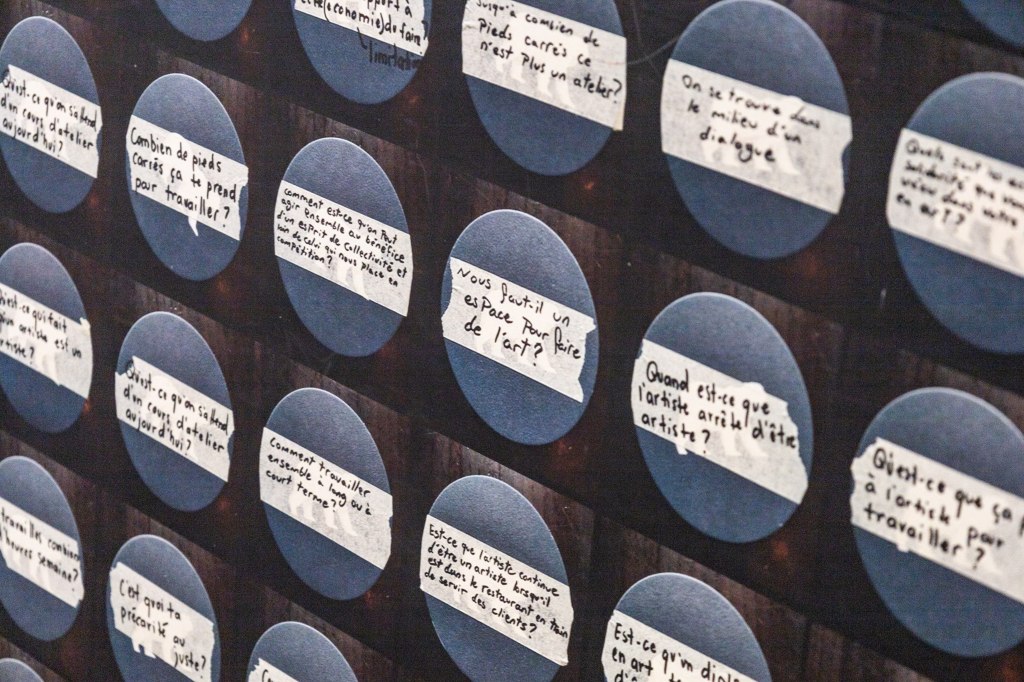 Qu'est-ce qu'on s'attend
d'un cours d'atelier
aujourd'hui?
Combien de pieds
carrés ça te prend
pour travailler?
(economie) du faire
l'inortation
jusqu'à combien de
Pieds carrés ce
n'est Plus un atelier?
On se trouve dans
le milieu d'un
dialogue
solidarité que
dans votre
en art?
comment est-ce qu'on Peut
agir ensemble au bénéfice
d'un esprit de collectivité et
loin de celui qui nous place en
compétition?
Nous faut-il un
esPace Pour faire
de l'art?
qui fait
artiste est un
artiste?
Qu'est-ce qu'on s'attend
d'un cours d'atelier
aujourd'hui?
Comment travailler
ensemble à long ou à
court terme?
Quand est-ce que
l'artiste arrête d'être
artiste?
Qu'est-ce que ça
à l'artiste pour
travailler?
travailles combien
d'heures semaine?
C'est quoi ta
précarité au
juste?
Est-ce que l'artiste continue
d'être un artiste lorsqu'il
est dans le restaurant en train
de servir des clients?
Est-ce qu'un
en art